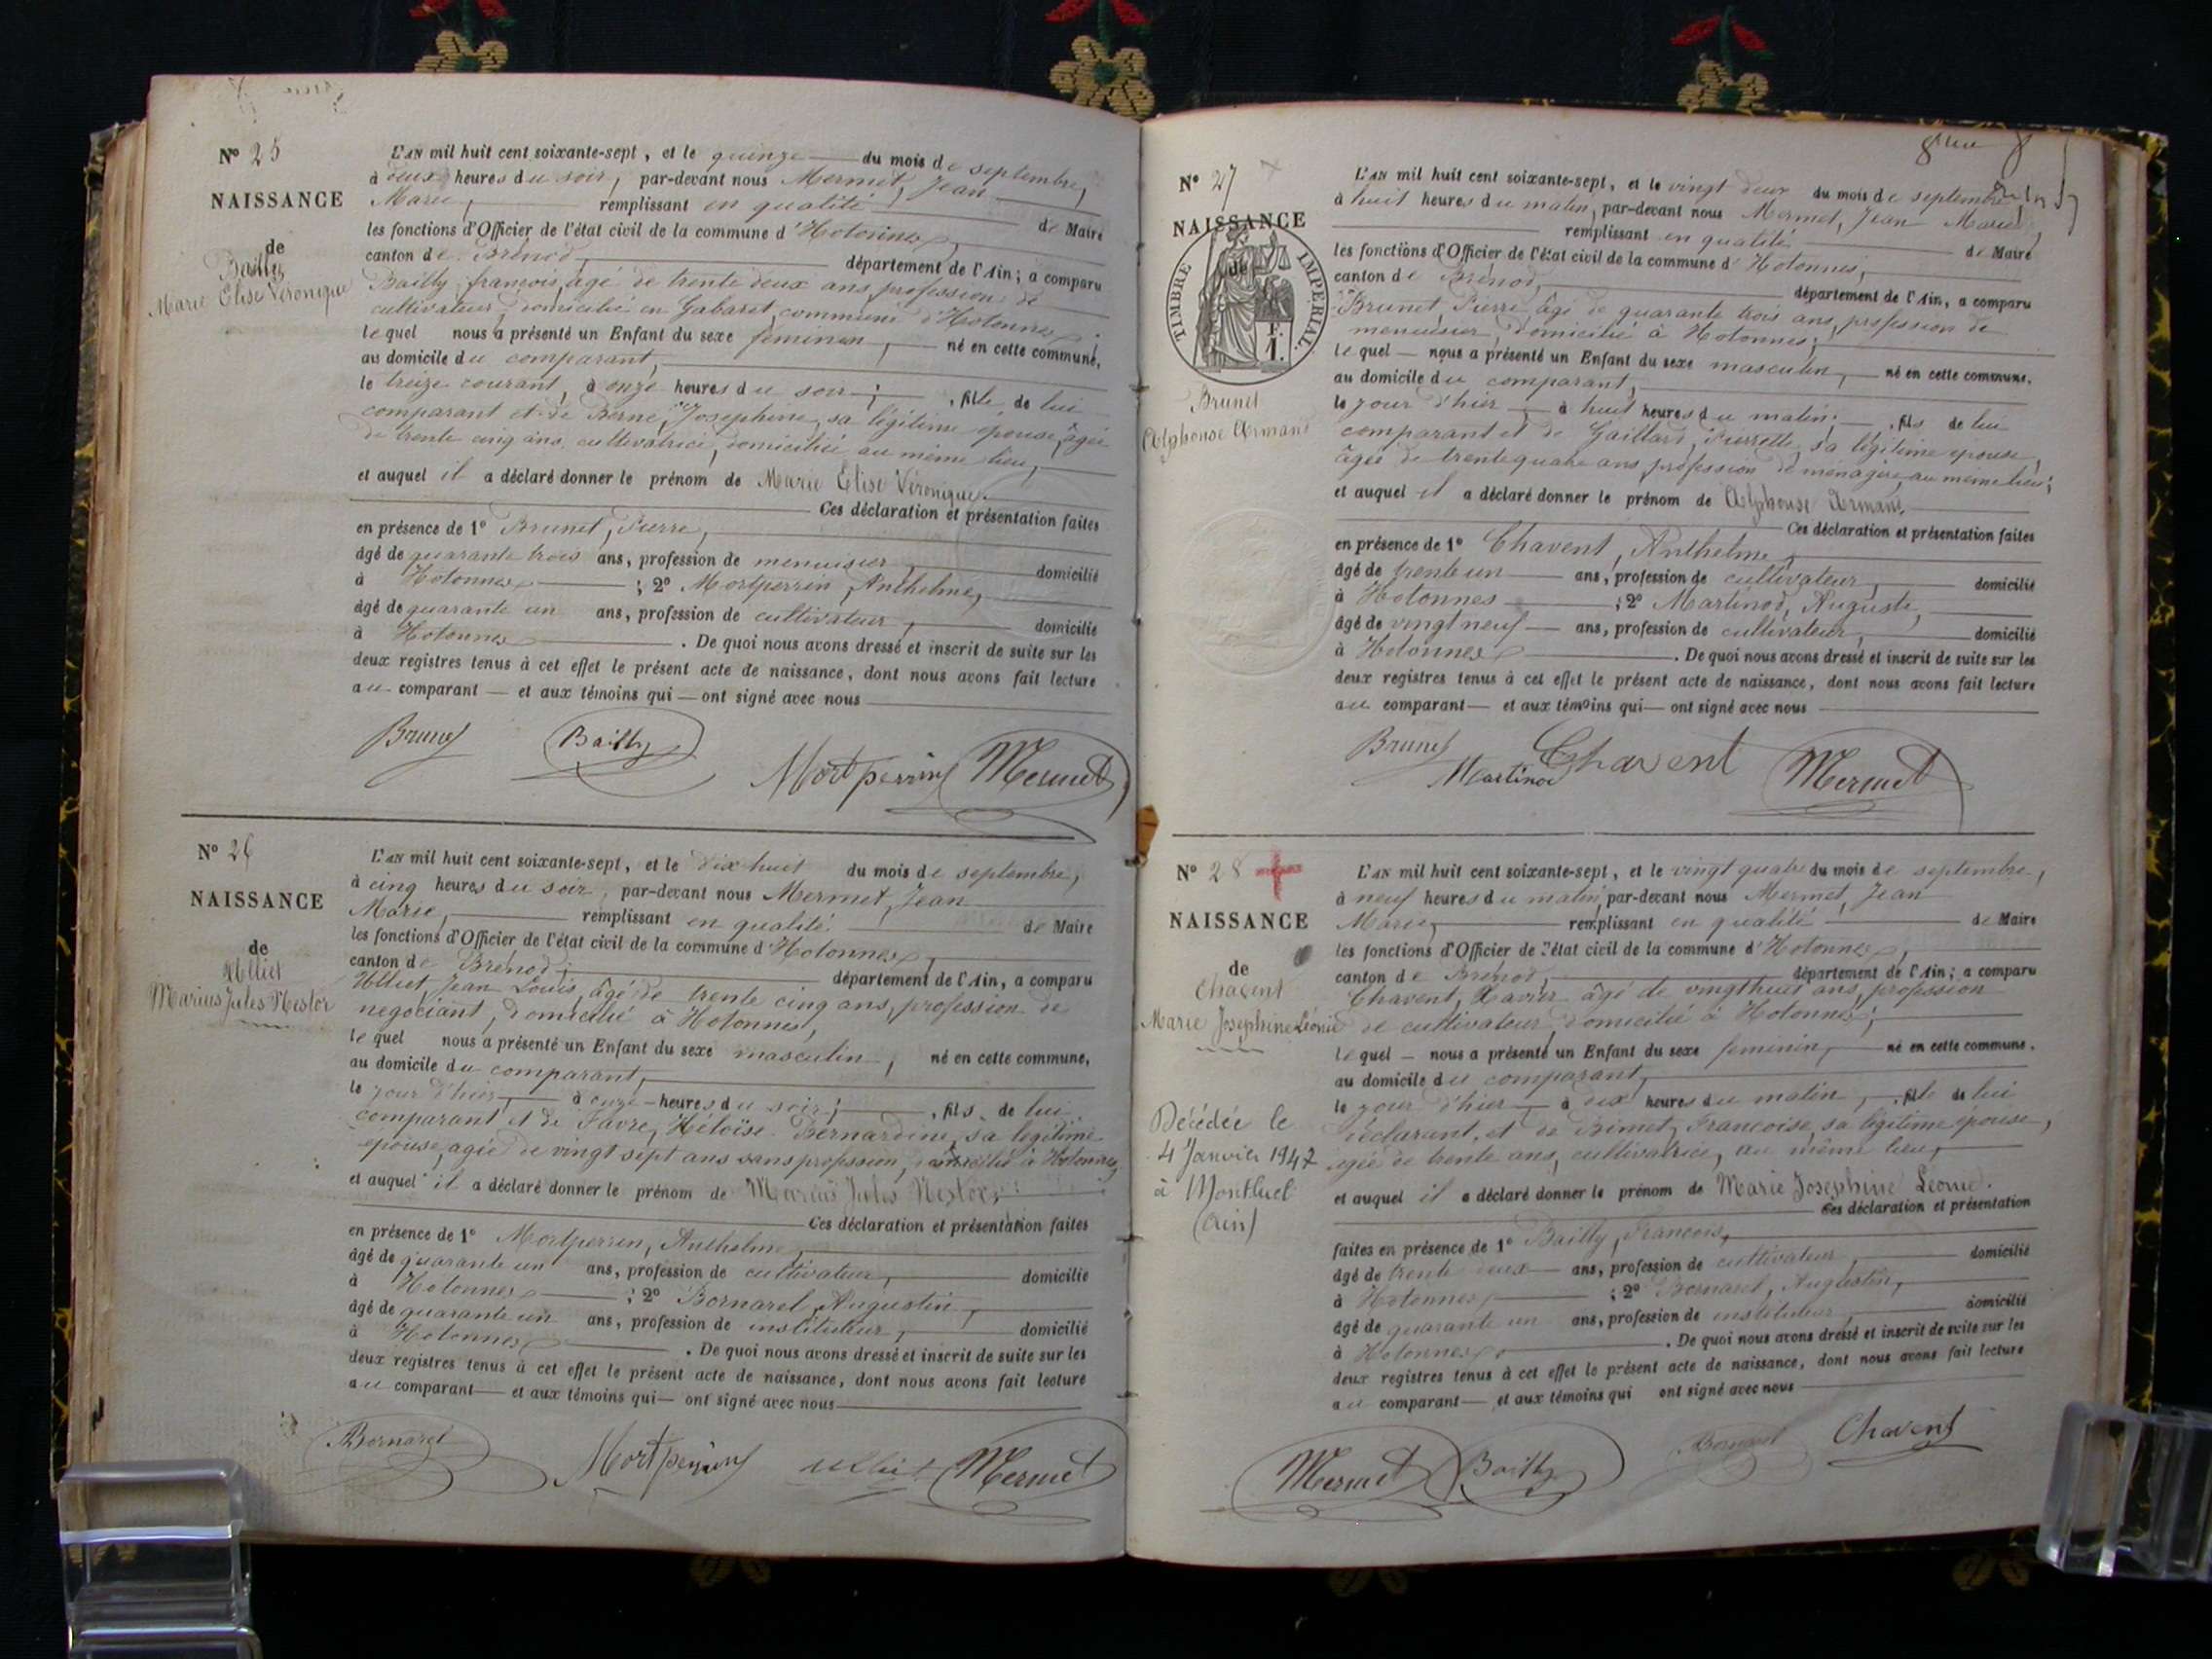 Nº 25
NAISSANCE
de
Bailly
Marie Elise Véronique
L'AN mil huit cent soixante-sept, et le quinze du mois de septembre,
à deux heures du soir, par-devant nous Mermet, Jean
Marie, remplissant en qualité de Maire
les fonctions d'Officier de l'état civil de la commune d'Hotonnes,
canton de Brénod, département de l'Ain; a comparu
Bailly, françois, âgé de trente deux ans, profession de
cultivateur, domicilié en Gabaret, commune d'Hotonnes,
lequel nous a présenté un Enfant du sexe féminin, né en cette commune,
au domicile du comparant,
le treize courant, à onze heures du soir; , fille de lui
comparant et de Berne, Josephine, sa légitime épouse, âgée
de trente cinq ans, cultivatrice, domiciliée au même lieu,
et auquel il a déclaré donner le prénom de Marie Elise Véronique.
Ces déclaration et présentation faites
en présence de 1º Brunet, Pierre,
âgé de quarante trois ans, profession de menuisier, domicilié
à Hotonnes ; 2º Mortperrin, Anthelme,
âgé de quarante un ans, profession de cultivateur, domicilié
à Hotonnes . De quoi nous avons dressé et inscrit de suite sur les
deux registres tenus à cet effet le présent acte de naissance, dont nous avons fait lecture
au comparant — et aux témoins qui — ont signé avec nous
Brunet Bailly Mortperrin Mermet
Nº 26
NAISSANCE
de
Ulliet
Marius Jules Nestor
L'AN mil huit cent soixante-sept, et le dix huit du mois de septembre,
à cinq heures du soir, par-devant nous Mermet, Jean
Marie, remplissant en qualité de Maire
les fonctions d'Officier de l'état civil de la commune d'Hotonnes,
canton de Brénod, département de l'Ain, a comparu
Ulliet, Jean Louis, âgé de trente cinq ans, profession de
négociant, domicilié à Hotonnes,
lequel nous a présenté un Enfant du sexe masculin, né en cette commune,
au domicile du comparant,
le jour d'hier, à onze heures du soir; , fils de lui
comparant et de Favre, Héloïse Bernardine, sa légitime
épouse, agée de vingt sept ans sans profession, domiciliée à Hotonnes,
et auquel il a déclaré donner le prénom de Marius Jules Nestor;
Ces déclaration et présentation faites
en présence de 1º Mortperrin, Anthelme,
âgé de quarante un ans, profession de cultivateur, domicilié
à Hotonnes ; 2º Bornarel, Augustin,
âgé de quarante un ans, profession de instituteur, domicilié
à Hotonnes . De quoi nous avons dressé et inscrit de suite sur les
deux registres tenus à cet effet le présent acte de naissance, dont nous avons fait lecture
au comparant — et aux témoins qui — ont signé avec nous
Bornarel Mortperrin Ulliet Mermet
Nº 27
NAISSANCE
de
TIMBRE IMPERIAL
F.
1.
Brunet
Alphonse Armand
L'AN mil huit cent soixante-sept, et le vingt deux du mois de septembre,
à huit heures du matin, par-devant nous Mermet, Jean Marie,
remplissant en qualité de Maire
les fonctions d'Officier de l'état civil de la commune d'Hotonnes,
canton de Brénod, département de l'Ain, a comparu
Brunet, Pierre, âgé de quarante trois ans, profession de
menuisier, domicilié à Hotonnes;
lequel — nous a présenté un Enfant du sexe masculin, né en cette commune,
au domicile du comparant,
le jour d'hier à huit heures du matin; , fils de lui
comparant et de Gaillard, Pierrette, sa légitime épouse,
âgée de trente quatre ans, profession de ménagère, au même lieu;
et auquel il a déclaré donner le prénom de Alphonse Armand
Ces déclaration et présentation faites
en présence de 1º Chavent, Anthelme,
âgé de trente un ans, profession de cultivateur, domicilié
à Hotonnes ; 2º Martinod, Auguste,
âgé de vingt neuf ans, profession de cultivateur, domicilié
à Hotonnes . De quoi nous avons dressé et inscrit de suite sur les
deux registres tenus à cet effet le présent acte de naissance, dont nous avons fait lecture
au comparant — et aux témoins qui — ont signé avec nous
Brunet Martinod Chavent Mermet
Nº 28
NAISSANCE
de
Chavent
Marie Josephine Léonie
Décédée le
4 Janvier 1947
à Montluel
(Ain)
L'AN mil huit cent soixante-sept, et le vingt quatre du mois de septembre,
à neuf heures du matin, par-devant nous Mermet, Jean
Marie, remplissant en qualité de Maire
les fonctions d'Officier de l'état civil de la commune d'Hotonnes,
canton de Brénod, département de l'Ain; a comparu
Chavent, Xavier âgé de vingt huit ans, profession
de cultivateur, domicilié à Hotonnes;
lequel — nous a présenté un Enfant du sexe féminin, né en cette commune,
au domicile du comparant,
le jour d'hier à heures du matin, , fille de lui
déclarant, et de Binet, Françoise, sa légitime épouse,
agée de trente ans, cultivatrice, au même lieu,
et auquel il a déclaré donner le prénom de Marie Josephine Léonie.
Ces déclaration et présentation
faites en présence de 1º Bailly, François,
âgé de trente deux ans, profession de cultivateur, domicilié
à Hotonnes, ; 2º Bornarel, Augustin,
âgé de quarante un ans, profession de instituteur, domicilié
à Hotonnes . De quoi nous avons dressé et inscrit de suite sur les
deux registres tenus à cet effet le présent acte de naissance, dont nous avons fait lecture
au comparant — et aux témoins qui ont signé avec nous
Mermet Bailly Bornarel Chavent